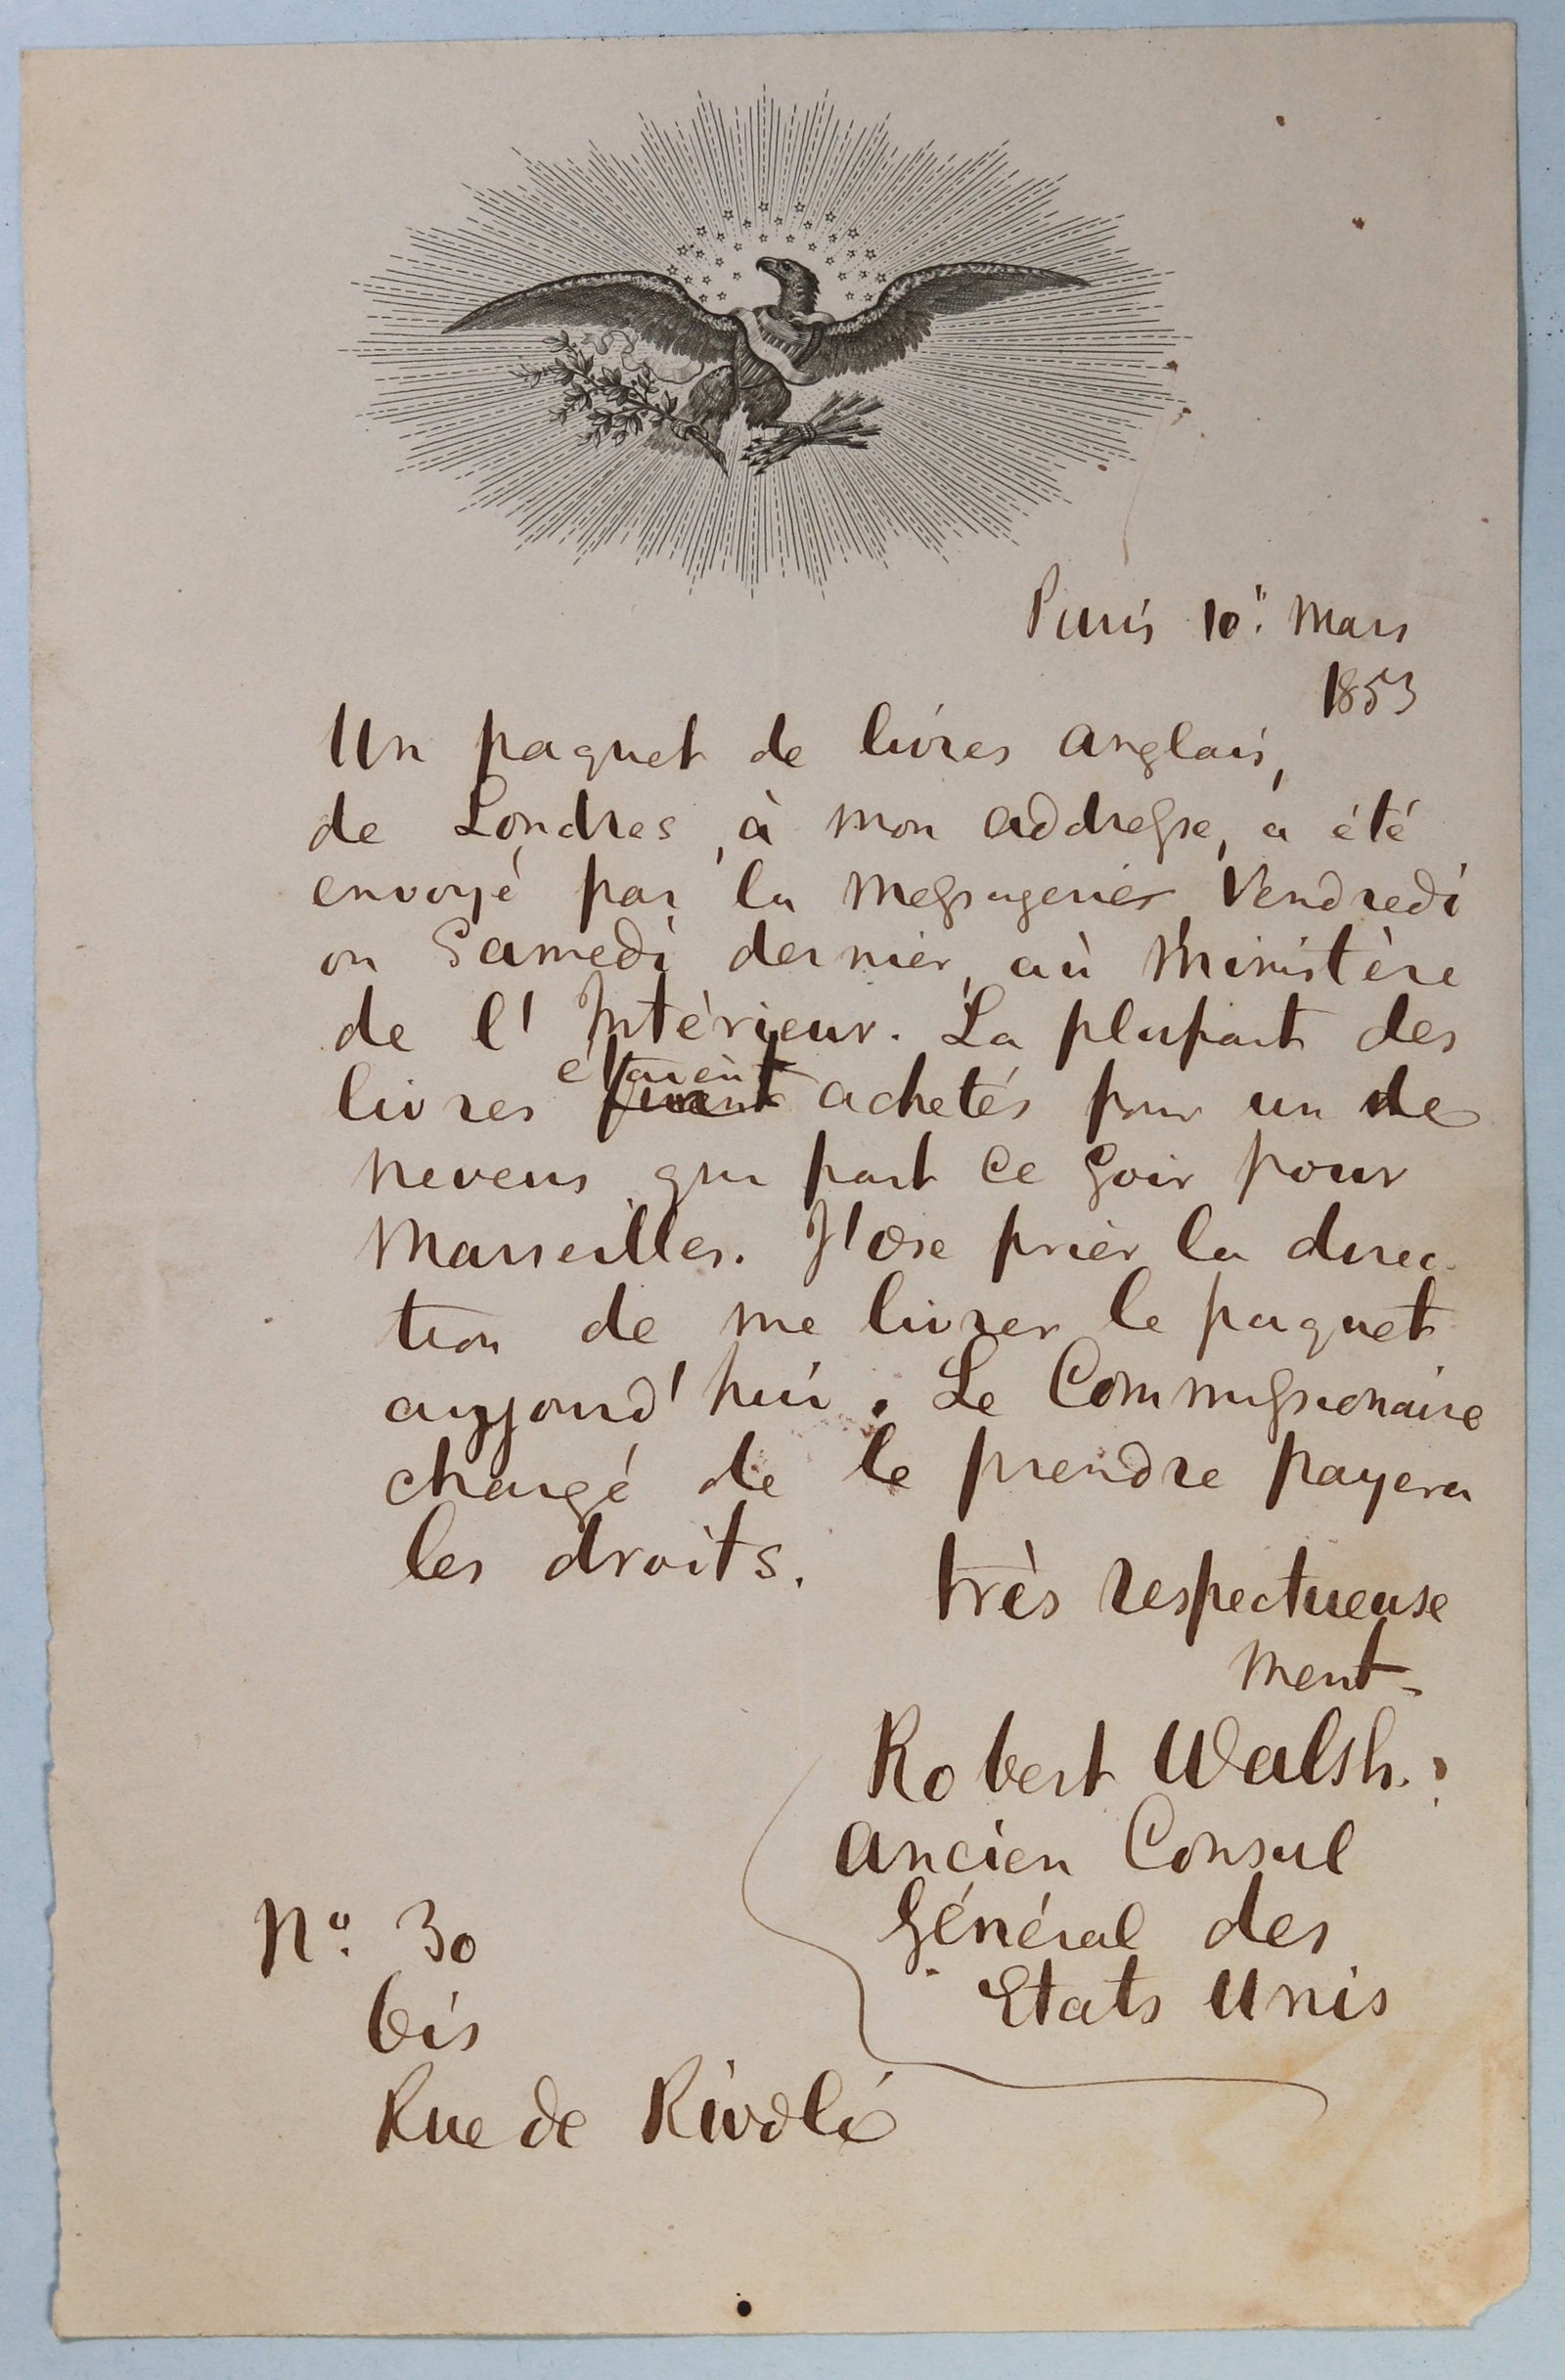 Paris 10. Mars
1853
Un paquet de livres anglais,
de Londres, à mon addresse, a été
envoyé par la messageries Vendredi
ou Samedi dernier, au Ministère
de l'Intérieur. La plupart des
livres étaient achetés pour un de
neveus qui part ce soir pour
Marseilles. J'ose prier la direc-
tion de me livrer le paquet
aujourd'hui. Le Commissionaire
chargé de le prendre payera
les droits.
très respectueuse
ment-
Robert Walsh.
ancien Consul
Général des
Etats Unis
No. 30
bis
Rue de Rivoli